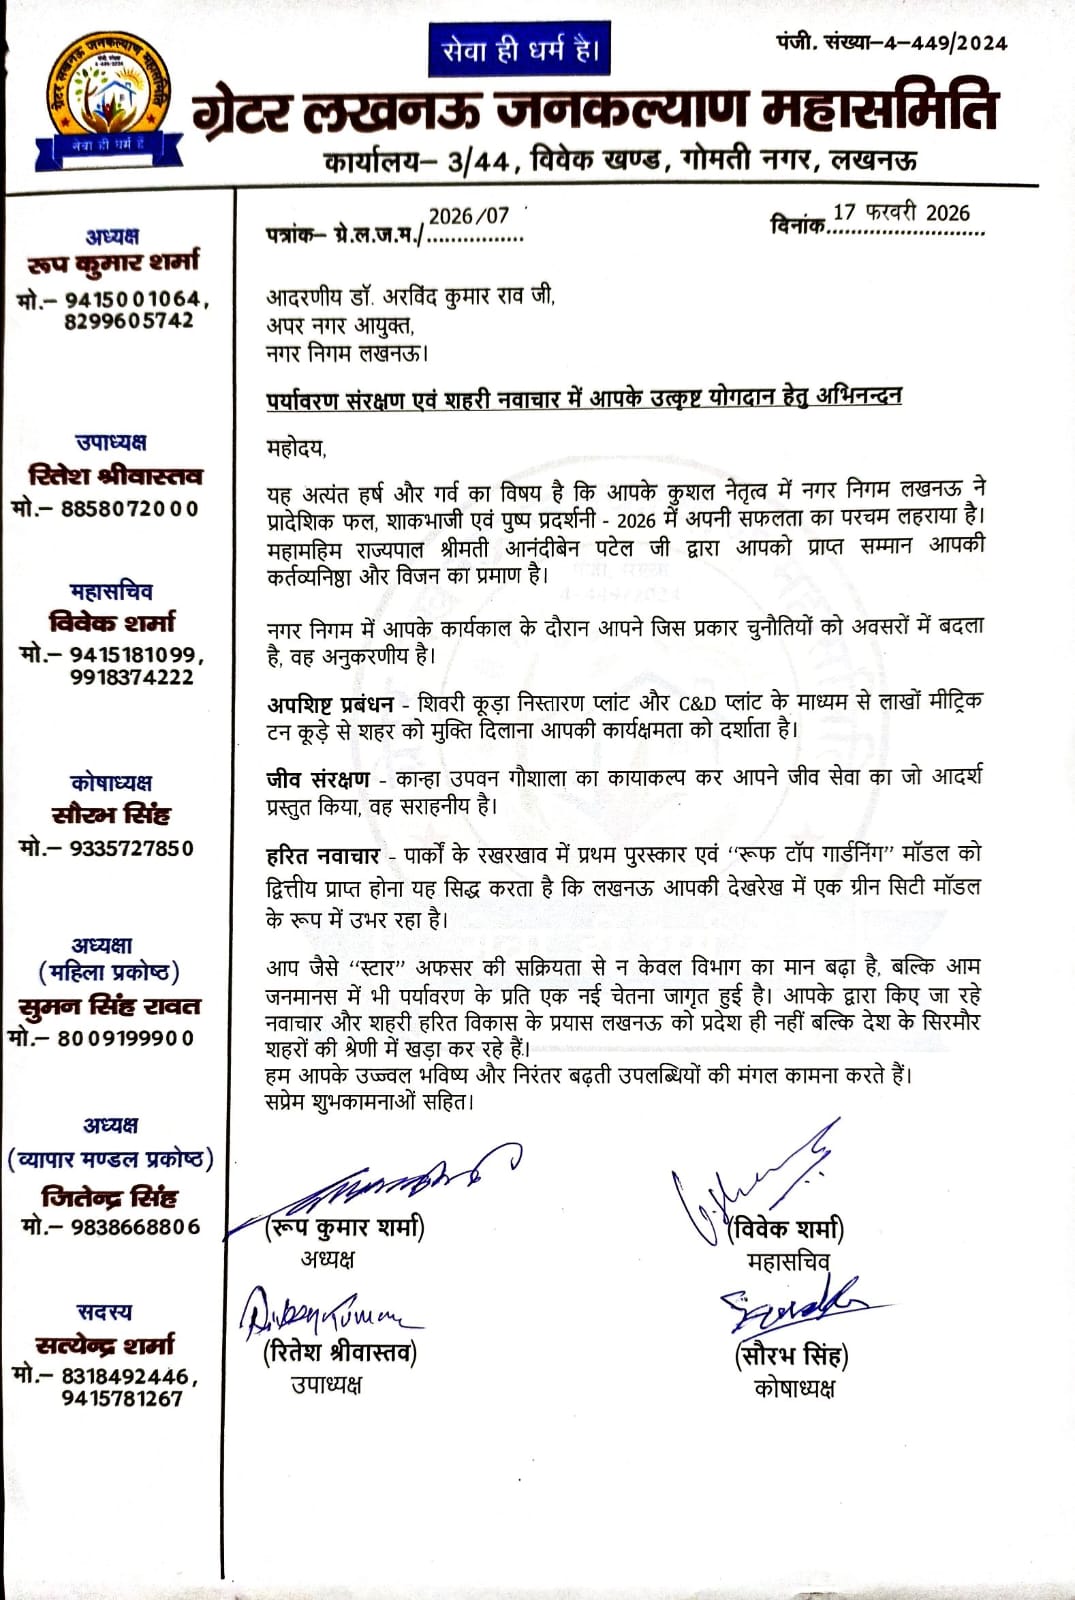 सेवा ही धर्म है।
पंजी. संख्या–4–449/2024
ग्रेटर लखनऊ जनकल्याण महासमिति
सेवा ही धर्म है
ग्रेटर लखनऊ जनकल्याण महासमिति
कार्यालय– 3/44, विवेक खण्ड, गोमती नगर, लखनऊ
अध्यक्ष
रूप कुमार शर्मा
मो.– 9415001064,
8299605742
उपाध्यक्ष
रितेश श्रीवास्तव
मो.– 8858072000
महासचिव
विवेक शर्मा
मो.– 9415181099,
9918374222
कोषाध्यक्ष
सौरभ सिंह
मो.– 9335727850
अध्यक्षा
(महिला प्रकोष्ठ)
सुमन सिंह रावत
मो.– 8009199900
अध्यक्ष
(व्यापार मण्डल प्रकोष्ठ)
जितेन्द्र सिंह
मो.– 9838668806
सदस्य
सत्येन्द्र शर्मा
मो.– 8318492446,
9415781267
पत्रांक– ग्रे.ल.ज.म./ 2026/07
दिनांक 17 फरवरी 2026
आदरणीय डॉ. अरविंद कुमार राव जी,
अपर नगर आयुक्त,
नगर निगम लखनऊ।
पर्यावरण संरक्षण एवं शहरी नवाचार में आपके उत्कृष्ट योगदान हेतु अभिनन्दन
महोदय,
यह अत्यंत हर्ष और गर्व का विषय है कि आपके कुशल नेतृत्व में नगर निगम लखनऊ ने
प्रादेशिक फल, शाकभाजी एवं पुष्प प्रदर्शनी - 2026 में अपनी सफलता का परचम लहराया है।
महामहिम राज्यपाल श्रीमती आनंदीबेन पटेल जी द्वारा आपको प्राप्त सम्मान आपकी
कर्तव्यनिष्ठा और विजन का प्रमाण है।
नगर निगम में आपके कार्यकाल के दौरान आपने जिस प्रकार चुनौतियों को अवसरों में बदला
है, वह अनुकरणीय है।
अपशिष्ट प्रबंधन - शिवरी कूड़ा निस्तारण प्लांट और C&D प्लांट के माध्यम से लाखों मीट्रिक
टन कूड़े से शहर को मुक्ति दिलाना आपकी कार्यक्षमता को दर्शाता है।
जीव संरक्षण - कान्हा उपवन गौशाला का कायाकल्प कर आपने जीव सेवा का जो आदर्श
प्रस्तुत किया, वह सराहनीय है।
हरित नवाचार - पार्कों के रखरखाव में प्रथम पुरस्कार एवं “रूफ टॉप गार्डनिंग” मॉडल को
द्वित्तीय प्राप्त होना यह सिद्ध करता है कि लखनऊ आपकी देखरेख में एक ग्रीन सिटी मॉडल
के रूप में उभर रहा है।
आप जैसे “स्टार” अफसर की सक्रियता से न केवल विभाग का मान बढ़ा है, बल्कि आम
जनमानस में भी पर्यावरण के प्रति एक नई चेतना जागृत हुई है। आपके द्वारा किए जा रहे
नवाचार और शहरी हरित विकास के प्रयास लखनऊ को प्रदेश ही नहीं बल्कि देश के सिरमौर
शहरों की श्रेणी में खड़ा कर रहे हैं।
हम आपके उज्ज्वल भविष्य और निरंतर बढ़ती उपलब्धियों की मंगल कामना करते हैं।
सप्रेम शुभकामनाओं सहित।
(रूप कुमार शर्मा)
अध्यक्ष
(विवेक शर्मा)
महासचिव
(रितेश श्रीवास्तव)
उपाध्यक्ष
(सौरभ सिंह)
कोषाध्यक्ष